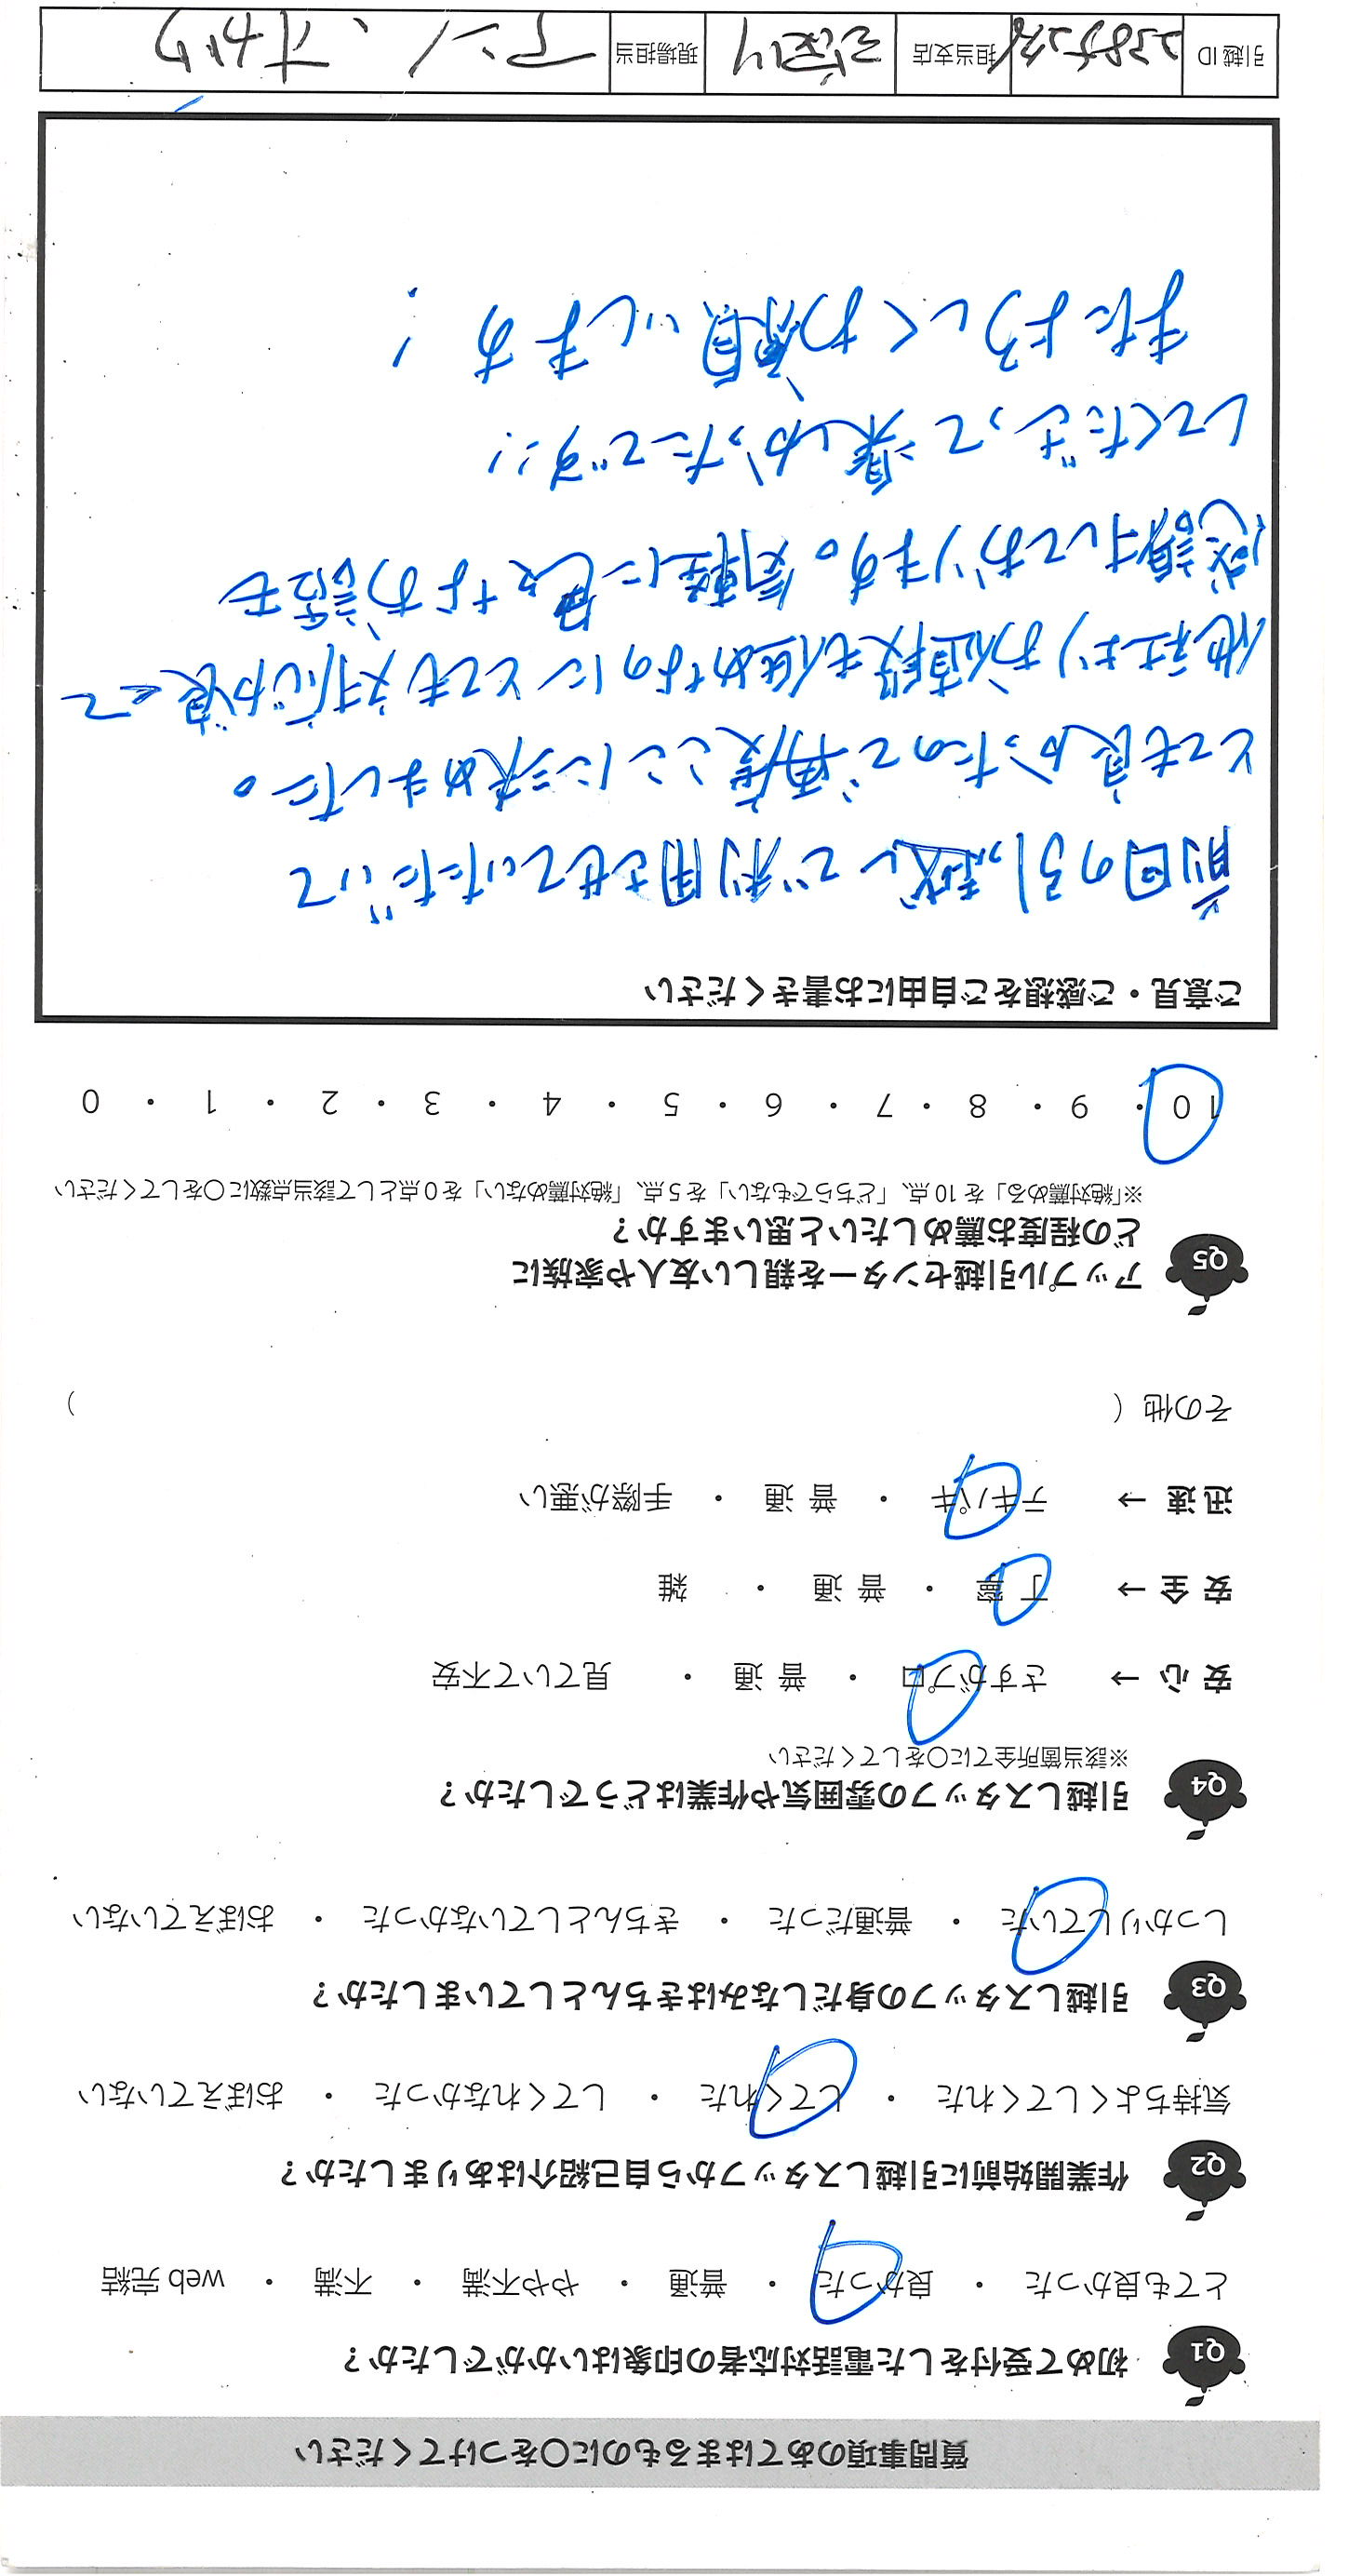 質問事項のあてはまるものに〇をつけてください
Q1 初めて受付をした電話対応者の印象はいかがでしたか？
とても良かった ・ 良かった ・ 普通 ・ やや不満 ・ 不満 ・ web 完結
Q2 作業開始前に引越しスタッフから自己紹介はありましたか？
気持ちよくしてくれた ・ してくれた ・ してくれなかった ・ おぼえていない
Q3 引越しスタッフの身だしなみはきちんとしていましたか？
しっかりしていた ・ 普通だった ・ きちんとしていなかった ・ おぼえていない
Q4 引越しスタッフの雰囲気や作業はどうでしたか？
※該当箇所全てに〇をしてください
安 心 → さすがプロ ・ 普 通 ・ 見ていて不安
安 全 → 丁 寧 ・ 普 通 ・ 雑
迅 速 → テキパキ ・ 普 通 ・ 手際が悪い
その他（ ）
Q5 アップル引越センターを親しい友人や家族に
どの程度お薦めしたいと思いますか？
※「絶対薦める」を 10 点、「どちらでもない」を 5 点、「絶対薦めない」を 0 点として該当点数に〇をしてください
10 ・ 9 ・ 8 ・ 7 ・ 6 ・ 5 ・ 4 ・ 3 ・ 2 ・ 1 ・ 0
ご意見・ご感想をご自由にお書きください
前回の引っ越しで利用させていただいて
とても良かったので再度ここに決めました。
他社よりお値段も低めなのにとても対応が良くて
感謝しております。気軽に色々なお話も
してくださって楽しかったです!!
またよろしくお願いします！
引越 ID 担当支店 現場担当